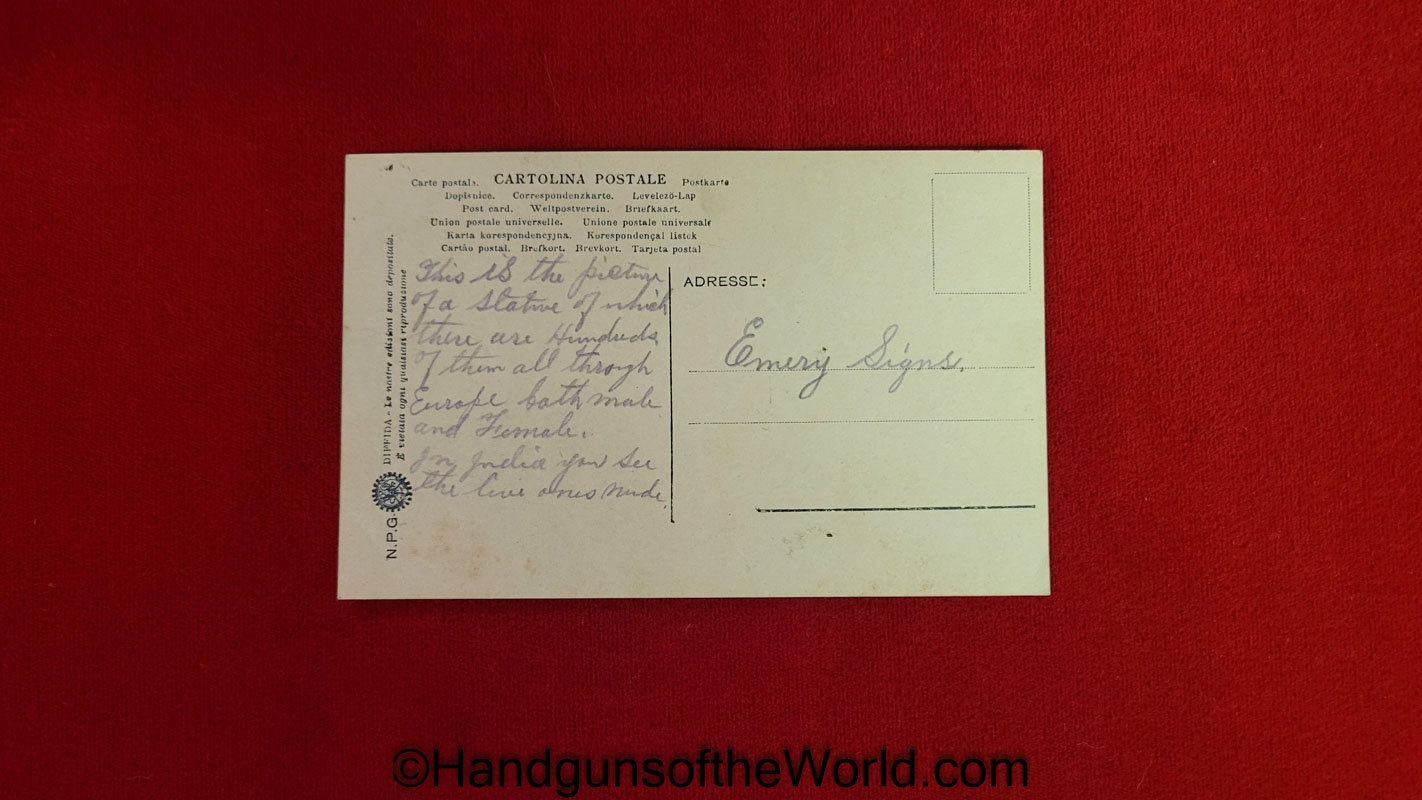 Carte postale. CARTOLINA POSTALE Postkarte
Dopisnice. Correspondenzkarte. Levelezö-Lap
Post card. Weltpostverein. Briefkaart.
Union postale universelle. Unione postale universale
Karta korespondencyjna. Korespondençal listek
Cartão postal. Brefkort. Brevkort. Tarjeta postal
This is the picture
of a statue of which
there are Hundreds
of them all through
Europe both male
and Female.
In India you see
the live ones nude.
ADRESSE:
Emery Signs.
N.P.G. DIFFIDA - Le nostre edizioni sono depositate.
È vietata ogni qualsiasi riproduzione
©HandgunsoftheWorld.com